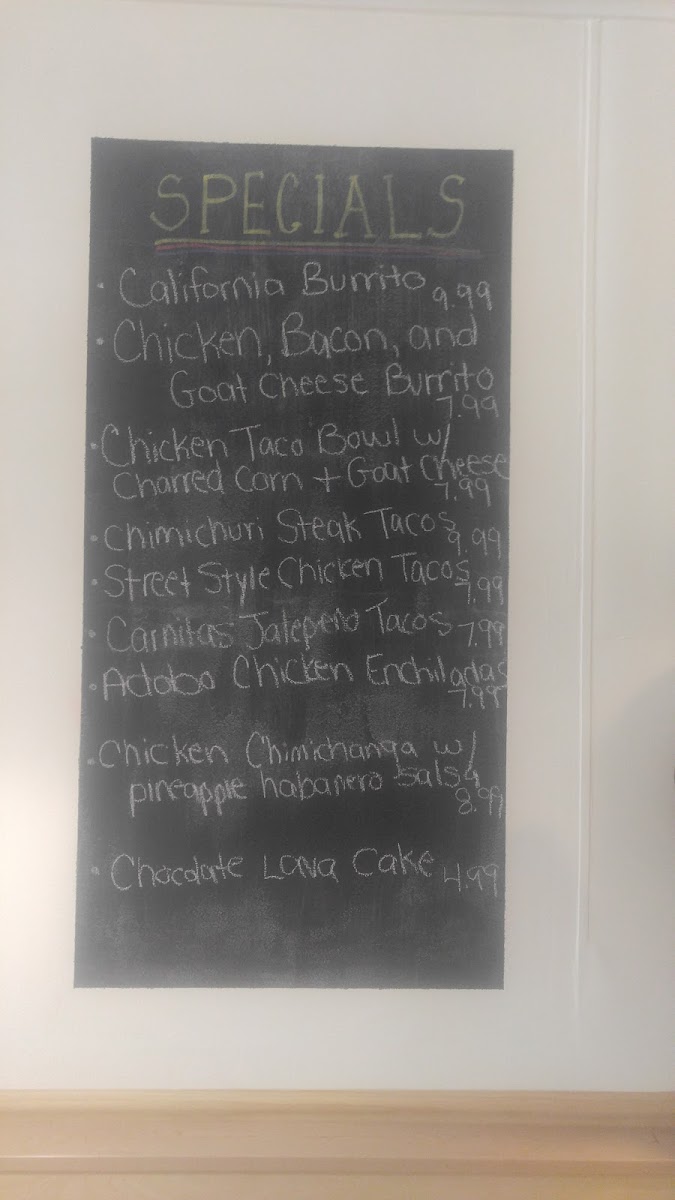 SPECIALS
• California Burrito 9.99
• Chicken, Bacon, and
Goat Cheese Burrito
7.99
• Chicken Taco Bowl w/
Charred Corn + Goat Cheese
7.99
• Chimichuri Steak Tacos 9.99
• Street Style Chicken Tacos 7.99
• Carnitas Jalepeño Tacos 7.99
• Adobo Chicken Enchiladas
7.99
• Chicken Chimichanga w/
pineapple habanero salsa
8.99
• Chocolate Lava Cake 4.99